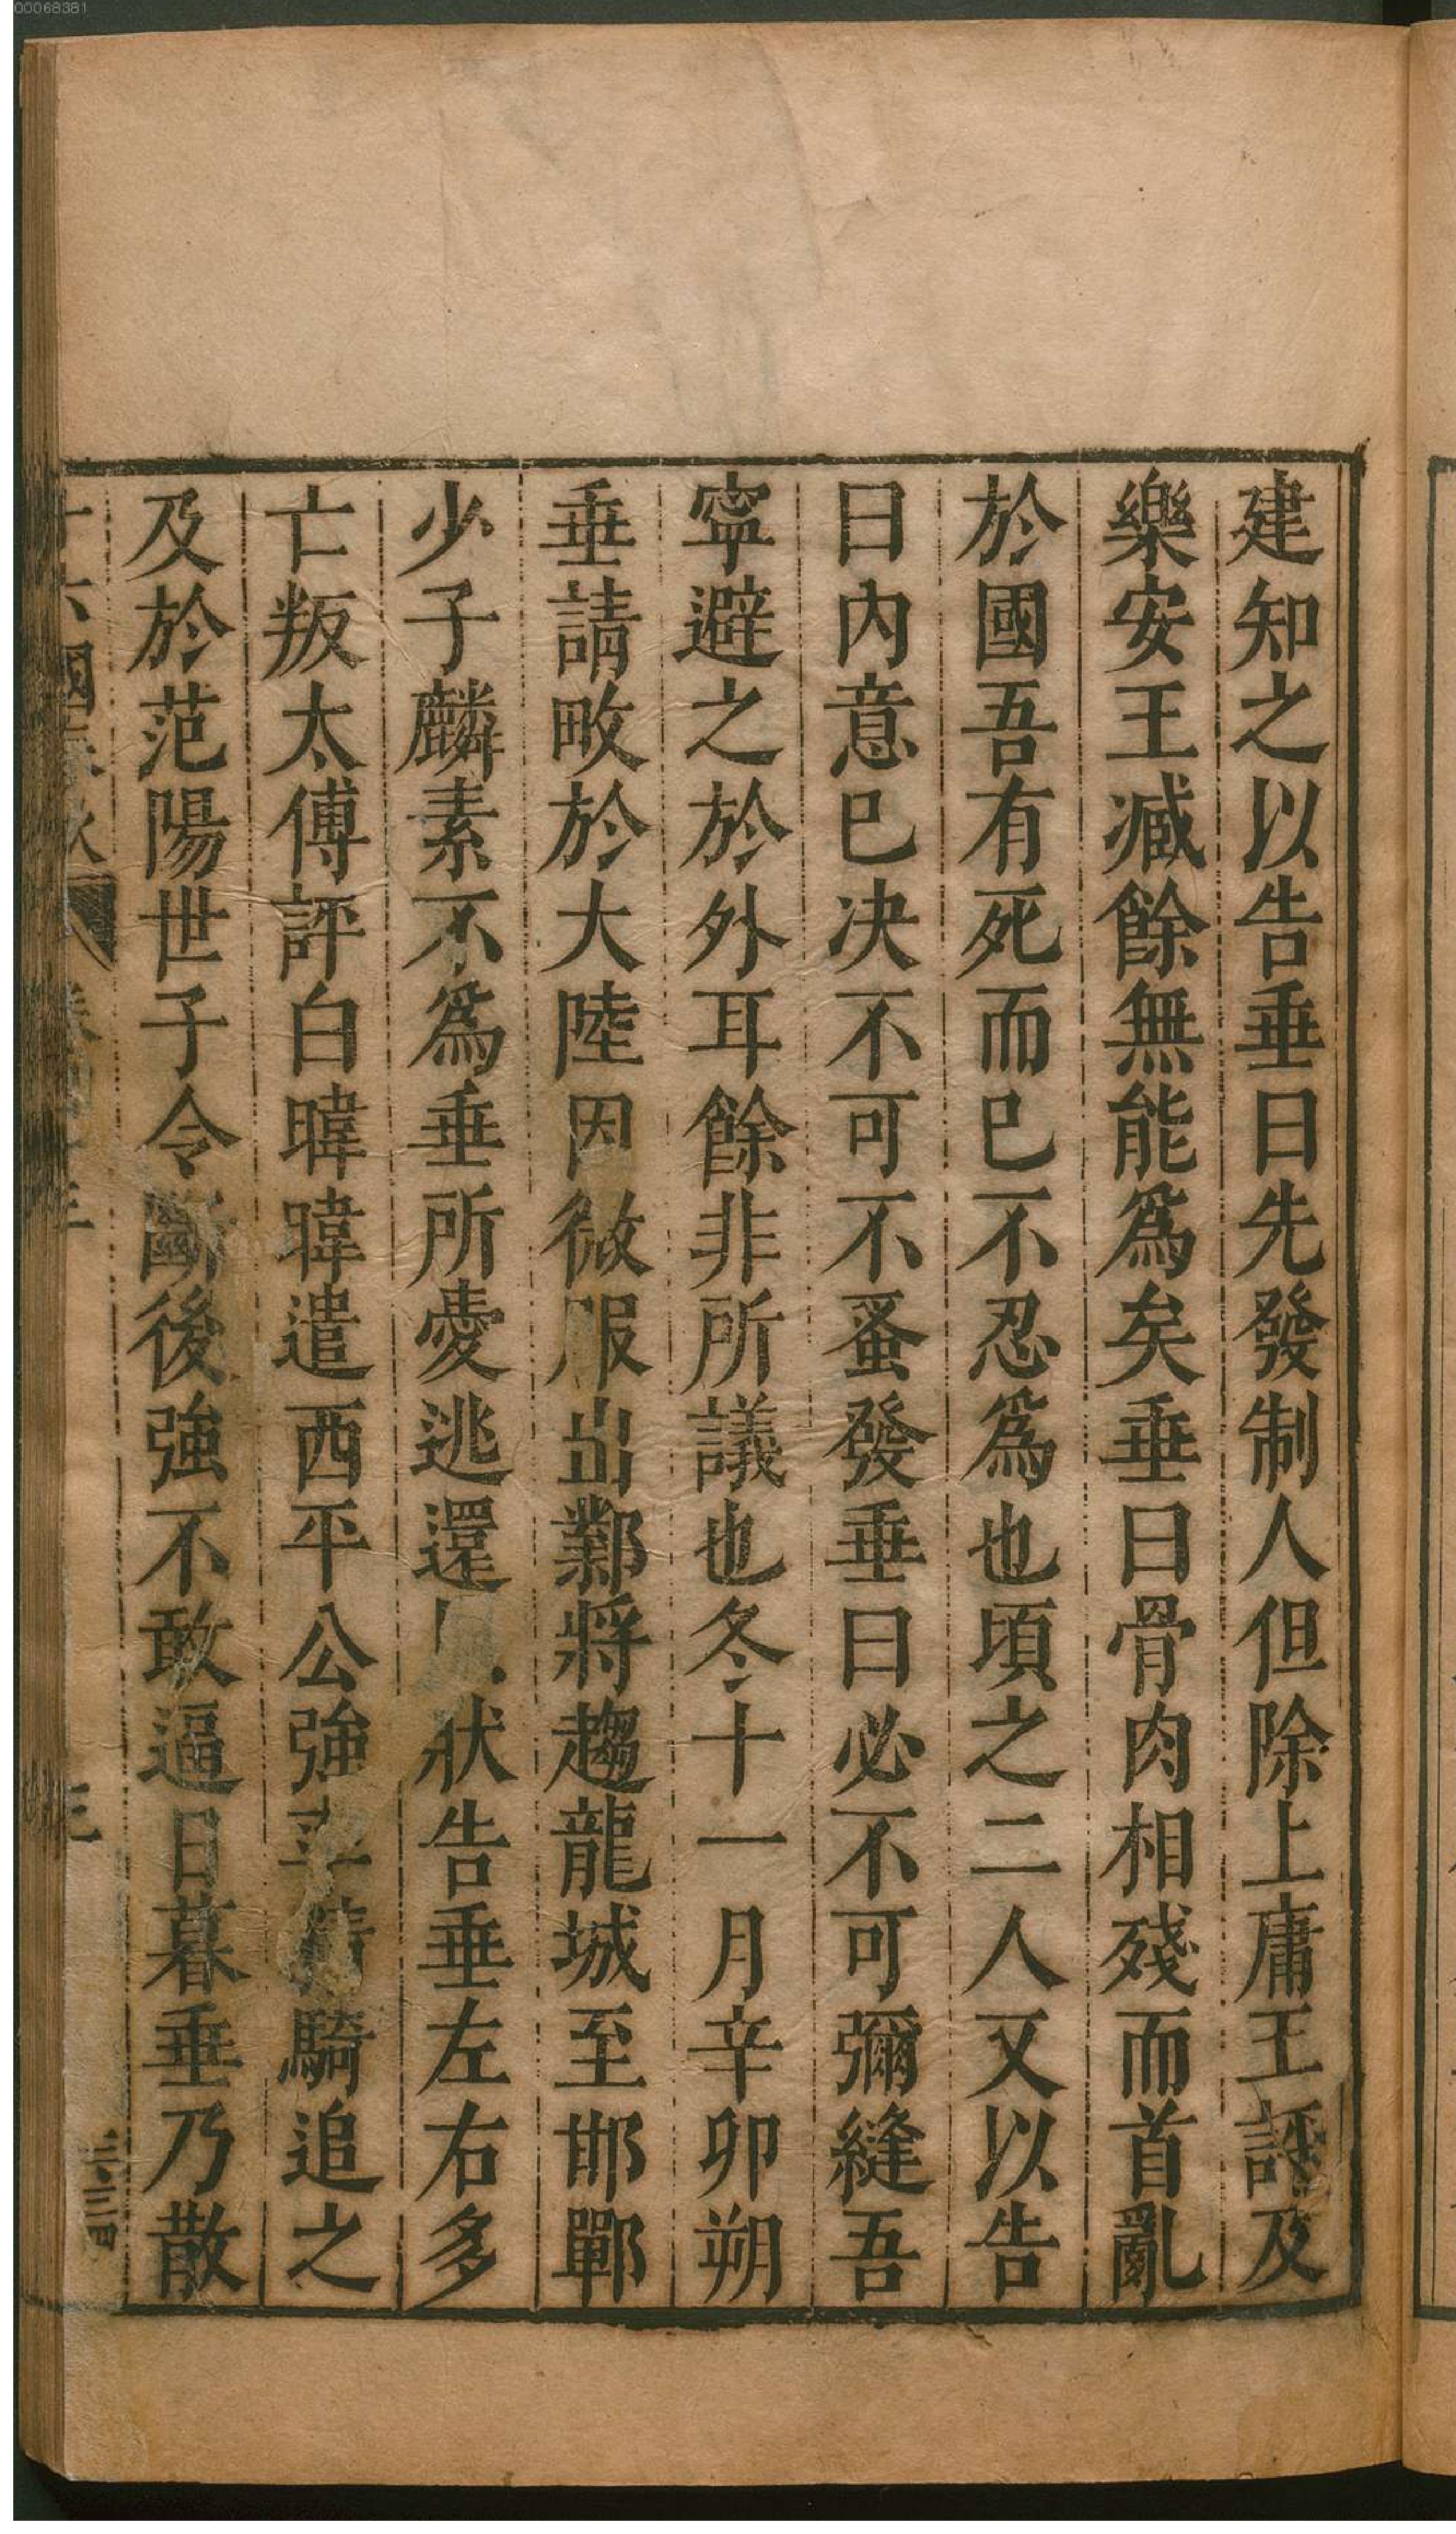 00068381
建知之以告垂曰先發制人但除上庸王評及
樂安王臧餘無能爲矣垂曰骨肉相殘而首亂
於國吾有死而已不忍爲也頃之二人又以告
曰內意已決不可不蚤發垂曰必不可彌縫吾
寧避之於外耳餘非所議也冬十一月辛卯朔
垂請畋於大陸因微服出鄴將趨龍城至邯鄲
少子麟素不爲垂所愛逃還狀告垂左右多
亡叛太傅評白暐暐遣西平公強率精騎追之
及於范陽世子令斷後強不敢逼日暮垂乃散
十六國春秋 三